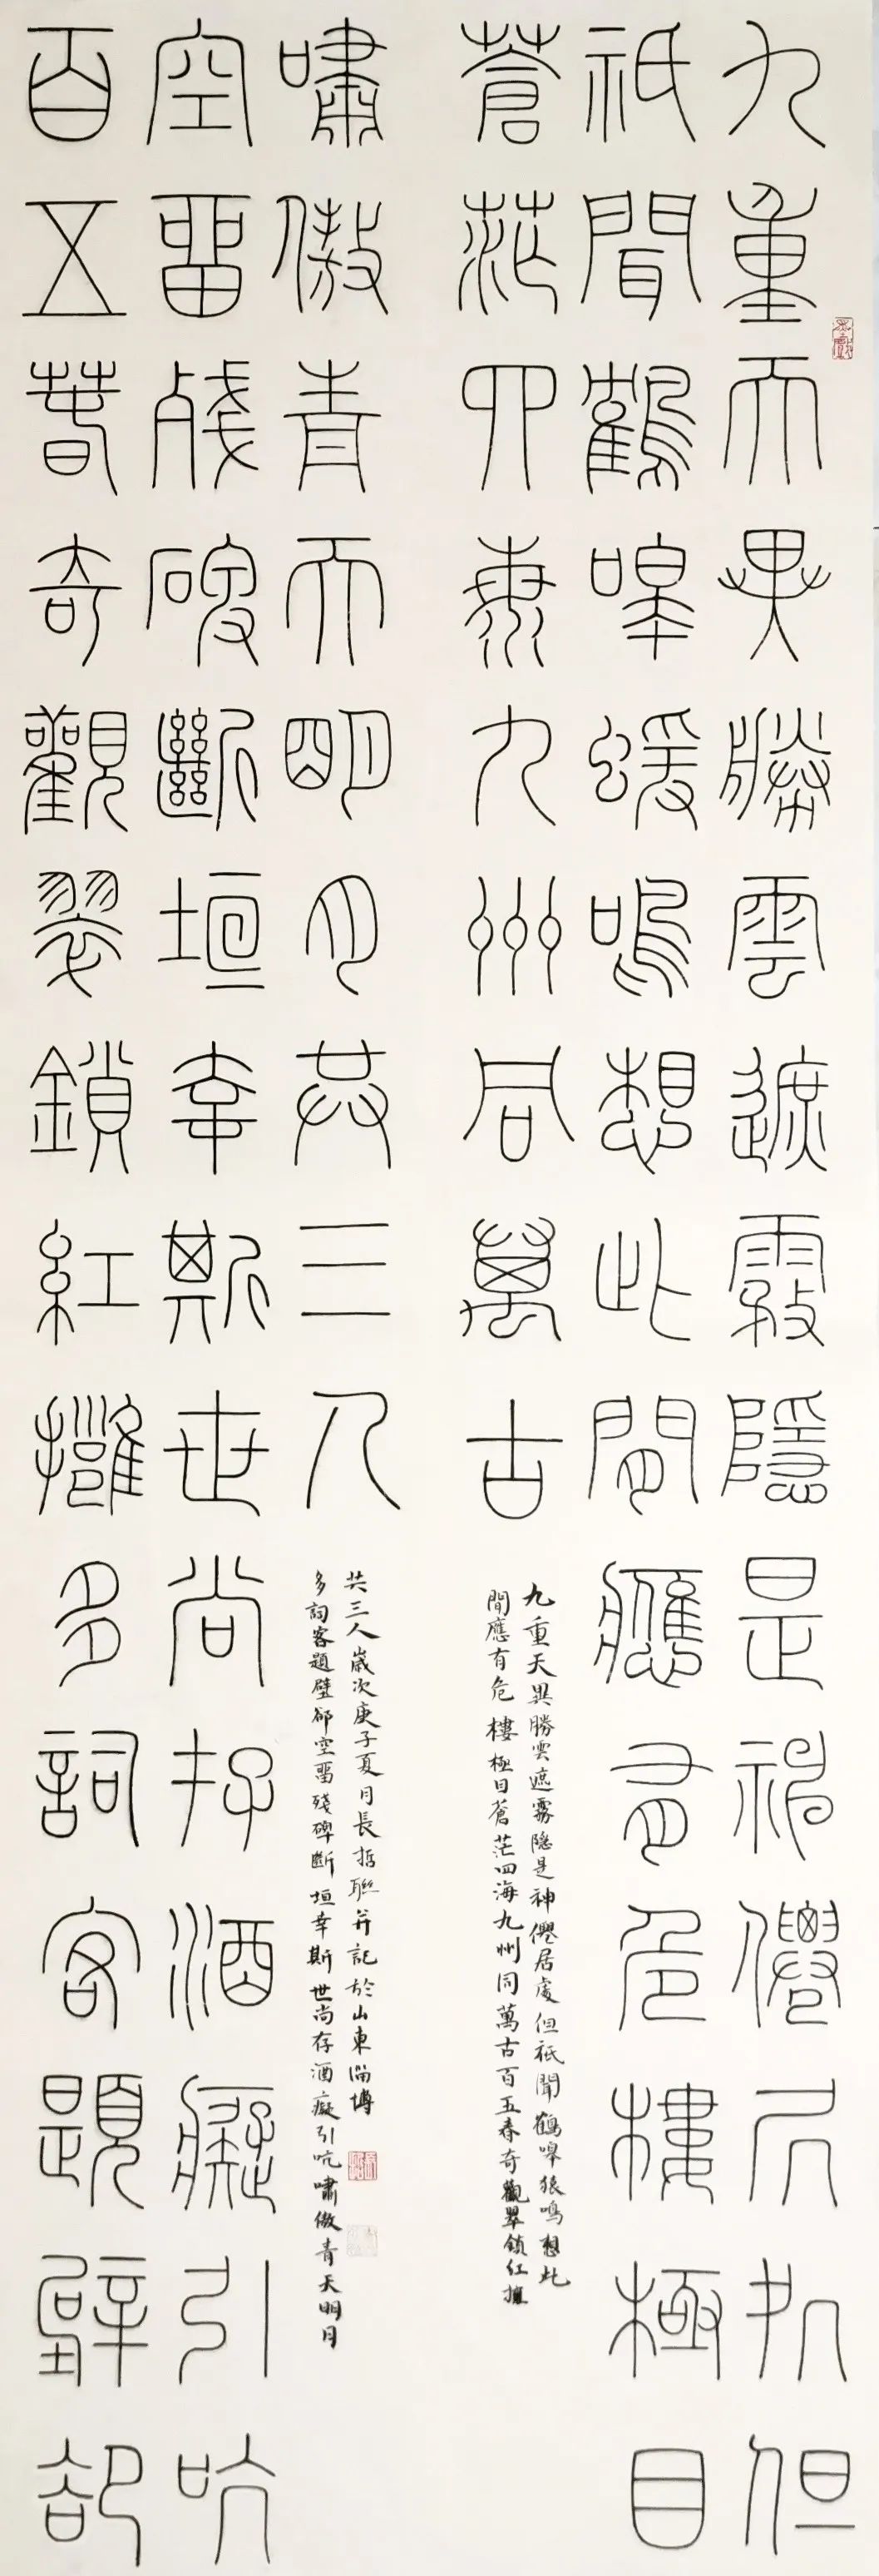 九重天異勝雲遮霧隱是神僊居処但
祇聞鶴嘷猨鳴想此間應有危樓極目
蒼茫四海九州同萬古
九重天異勝雲遮霧隱是神僊居處但祇聞鶴嘷猿鳴想此
間應有危樓極目蒼茫四海九州同萬古百五春奇觀翠鎖紅擁
百五春奇觀翠鎖紅擁多詞客題壁卻
空畱殘碑斷垣幸斯世尚存酒癡引吭
嘯傲青天明月共三人
多詞客題壁卻空畱殘碑斷垣幸斯世尚存酒癡引吭嘯傲青天明月
共三人歲次庚子夏月長哲聯并記於山東淄博